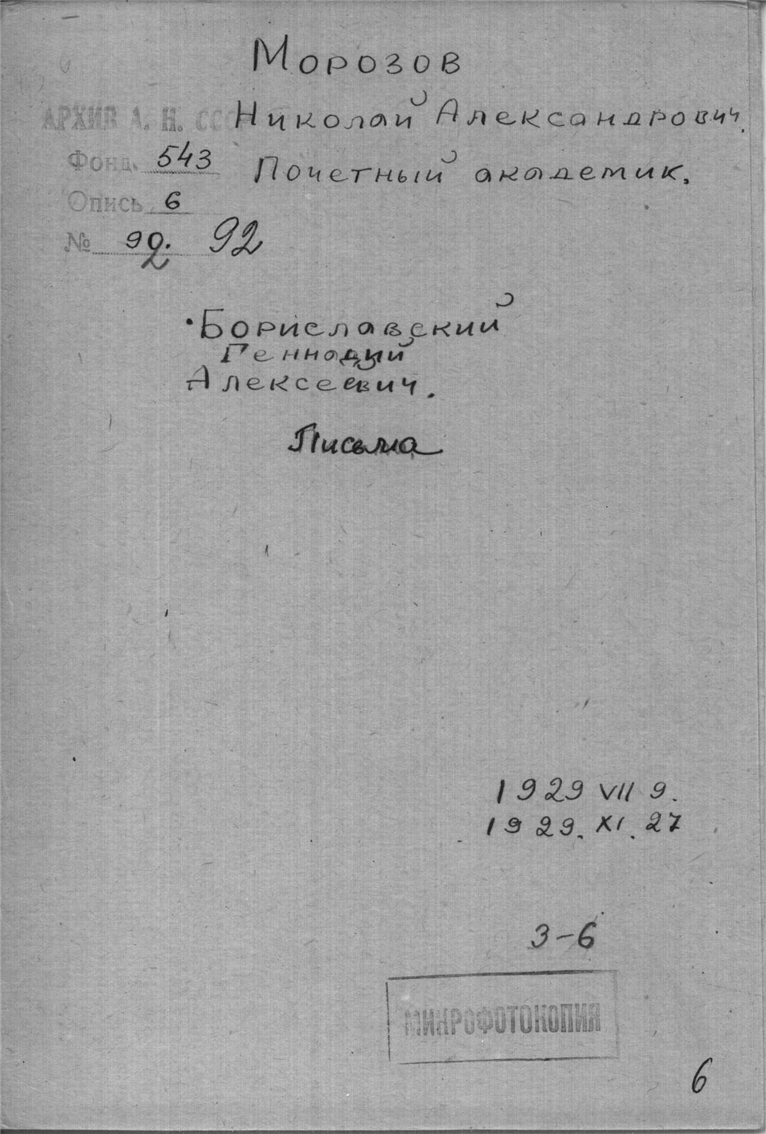 Морозов
АРХИВ А. Н. СССР
Николай Александрович.
Фонд. 543
Почетный академик.
Опись 6
№ 92. 92
Бориславский
Геннадий
Алексеевич.
Письма
1929 VII 9.
1929. XI. 27
3-6
МИКРОФОТОКОПИЯ
6